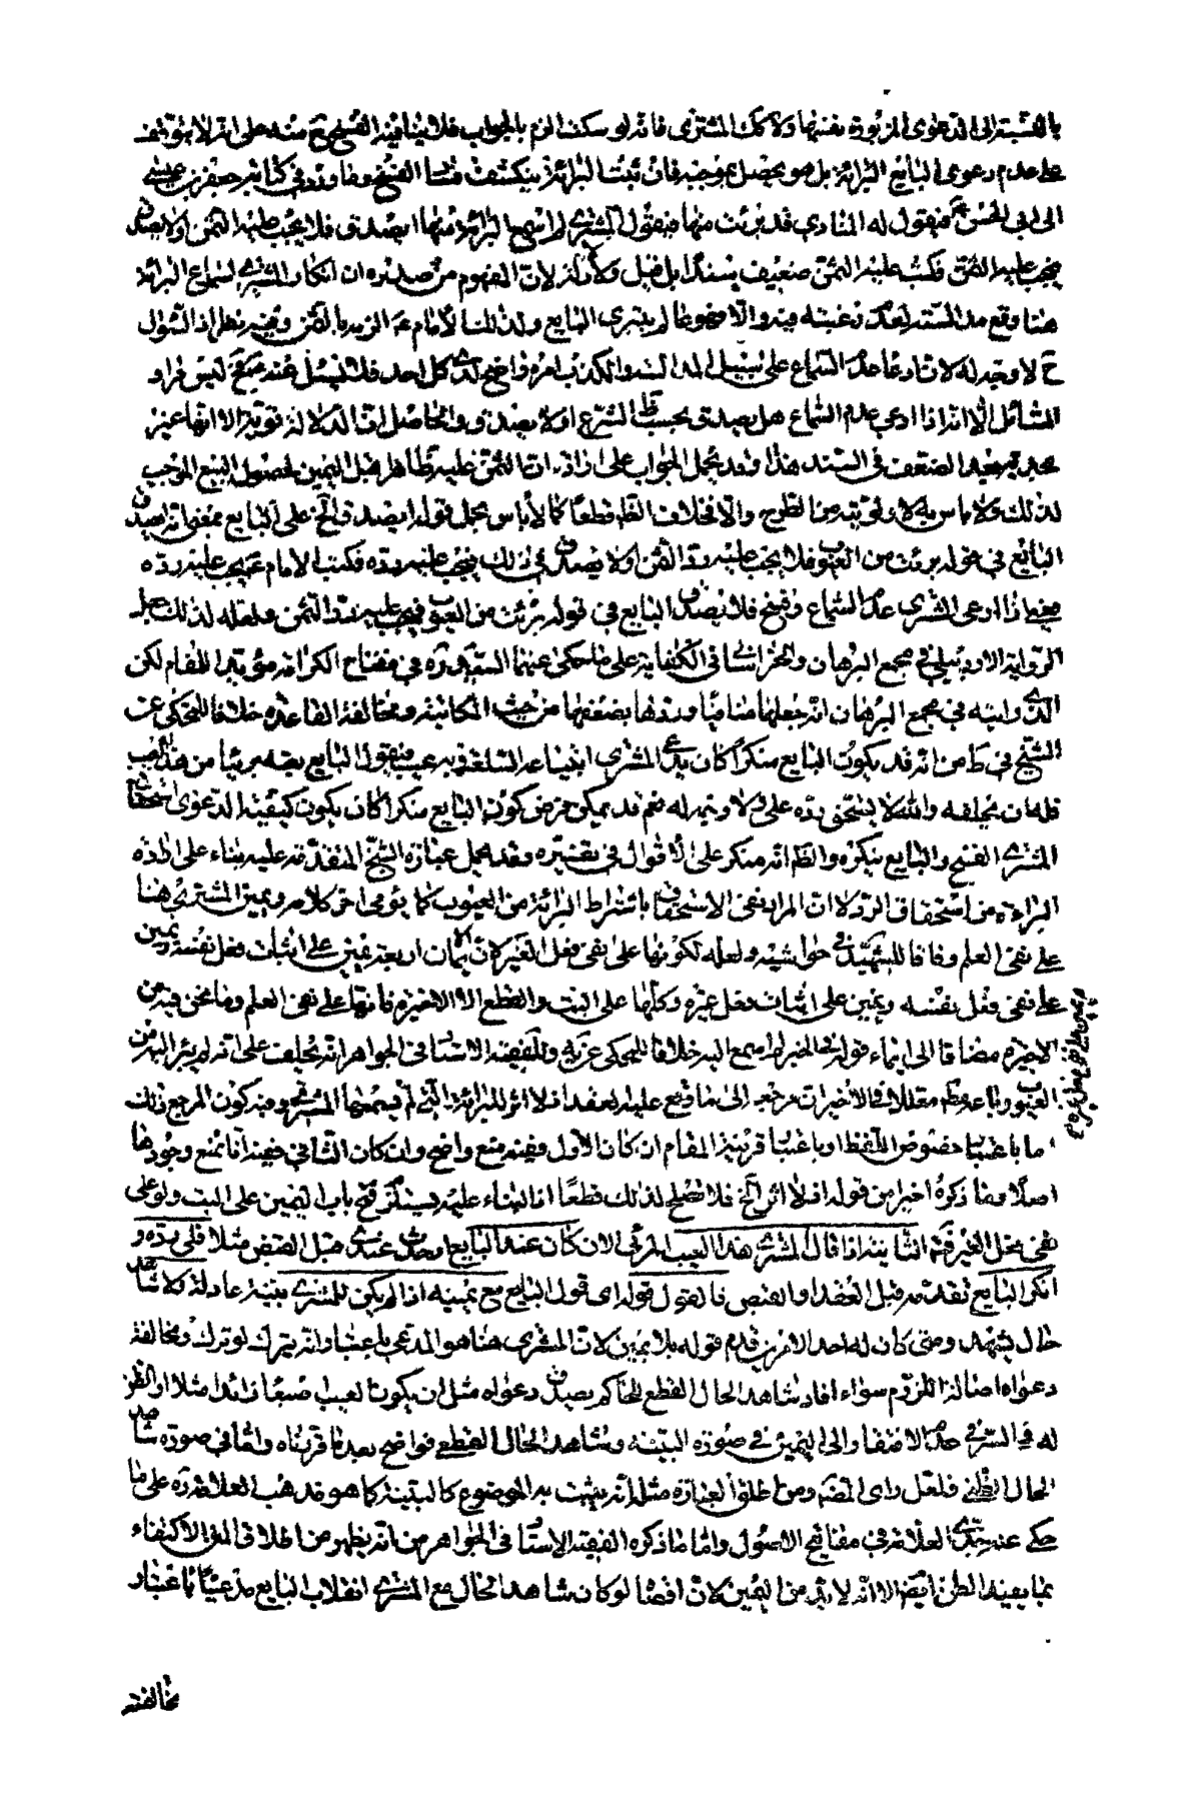 بالنسبة الى الدعوى المزبورة بنفسها ولا كك المشترى فانه لو سكت الزم بالجواب فلا ينافيه الفسخ منه على انه لا يتوقف
على عدم دعوى البايع البرائة بل هو يحصل بموجبه فان ثبت البرائة ينكشف فساد الفسخ وما ورد في كتابة جعفر بن عيسى
الى ابى الحسن ع فيقول له المنادي قد برئت منها فيقول المشتري لم اسمع البرائة منها ايصدق فلا يجب عليه الثمن او لا يصدق
فيجب عليه الثمن فكتب عليه الثمن ضعيف سندا بل قيل ودلالة لان المفهوم من صدره ان انكار المشتري لسماع البرائة
هنا وقع مدالسة لعدم رغبته فيه والا فهو عالم بتبرى البايع ولذا الزمه الامام ع بالثمن وفيه نظر اذ السؤال
ح لا وجه له لان ادعاء عدم السماع على سبيل المدالسة والكذب امره واضح لدى كل احد فلا يسئل عنه
المسائل الا انه اذا ادعى عدم السماع هل يصدق بحسب ظ الشرع او لا يصدق والحاصل ان الدلالة قوية الا انها غير
مجدية بعد الضعف في السند هذا وقد يحمل الجواب على ارادة ان الثمن عليه ظاهرا قبل اليمين لحصول البيع الموجب
لذلك ولا باس به لانه اولى من الطرح والا فخلاف الظ قطعا كما لا باس بحمل قوله ايصدق الخ على البايع بمعنى انه ايصدق
البائع في قوله برئت من العيوب فلا يجب عليه رد الثمن او لا يصدق في ذلك فيجب عليه رده فكتب الامام ع يجب عليه رده
يعنى اذا ادعى المشترى عدم السماع وفسخ فلا يصدق البايع في قوله برئت من العيوب فيجب عليه رد الثمن ولعله لذلك جعل
الرواية الاردبيلي في مجمع البرهان والخراساني في الكفاية على ما حكى عنهما السيد ره في مفتاح الكرامة مؤيدا للمقام لكن
الذي رايته في مجمع البرهان انه جعلها منافيا وردها بضعفها من حيث المكاتبة ومخالفة القاعدة خلافا للمحكى عن
الشيخ في ط من انه قد يكون البايع منكرا كان يدعى المشترى ابتياعه السلعة وبه عيب فيقول البايع بعته بريئا من هذا العيب
فله ان يحلفه والله لا يستحق رده على ولا وجه له نعم قد يمكن فرض كون البايع منكرا كان يكون كيفية الدعوى استحقاق
المشتري الفسخ والبايع ينكره والظ انه منكر على الاقوال في تفسيره وقد يحمل عبارة الشيخ المتقدمة عليه بناء على ارادة
البراءة من استحقاق الرد لا ان المراد نفى الاستحقاق باشتراط البرائة من العيوب كما يومى اخر كلامه ويمين المشترى هنا
على نفى العلم وفاقا للشهيد في حواشيه ولعله لكونها على نفى فعل الغير كان الايمان اربعة يمين على اثبات فعل نفسه ويمين
على نفى فعل نفسه ويمين على اثبات فعل غيره وكلها على البت والقطع الا الاخيرة فانها على نفى العلم وما نحن فيه من
ويمين على نفى فعل غيره
الاخيرة مضافا الى ايماء قوله في الخبر لم اسمع اليه خلافا للمحكى عن وللفقيه الاستاد في الجواهر انه يحلف على انه لم يبرء اليه من
العيوب وباعه معللا في الاخير مرجعه الى ما وقع عليه العقد اذ لا اثر للبرائة التي لم يسمعها المشترى وفيه كون المرجع ذلك
اما باعتبار خصوص اللفظ او باعتبار قرينة المقام ان كان الاول ففيه منع واضح وان كان الثاني ففيه انا نمنع وجودها
اصلا وما ذكره اخيرا من قوله اذ لا اثر الخ فلا يصلح لذلك قطعا اذ البناء عليه يستلزم فتح باب اليمين على البت ولو على
نفى فعل الغير ثم الثانية اذا قال المشتري هذا العيب المرئى الان كان عند البايع او حدث عندى قبل القبض مثلا فلى رده و
انكر البايع تقدمه قبل العقد او القبض فالقول قوله اى قول البايع مع يمينه اذا لم يكن للمشترى بينة عادلة ولا شاهد
حال يشهد ومتى كان له احد الامرين قدم قوله بلا يمين لان المشترى هنا هو المدعى باعتبار انه يترك لو ترك ومخالفة
دعواه اصالة اللزوم سواء افاد شاهد الحال القطع للحاكم بصدق دعواه مثل ان يكون العيب اصبعا زائدا مثلا او الظن
له في السرفى عدم الافتقار الى اليمين في صورة البينة وشاهد الحال القطعى فواضح بعد ما قررناه واما في صورة شاهد
الحال الظنى فلعل راى المصنف ومن اطلق العبارة مثله انه يثبت به الموضوع كالبينة كما هو مذهب العلامة ره على ما
حكى عنه جدى العلامة في مفاتيح الاصول واما ما ذكره الفقيه الاستاد في الجواهر من انه يظهر من اطلاق المصنف الاكتفاء
بما يفيد الظن ايضا الا انه لا بد من اليمين لان اقصاه لو كان شاهد الحال مع المشتري انقلاب البايع مدعيا باعتبار
مخالفته